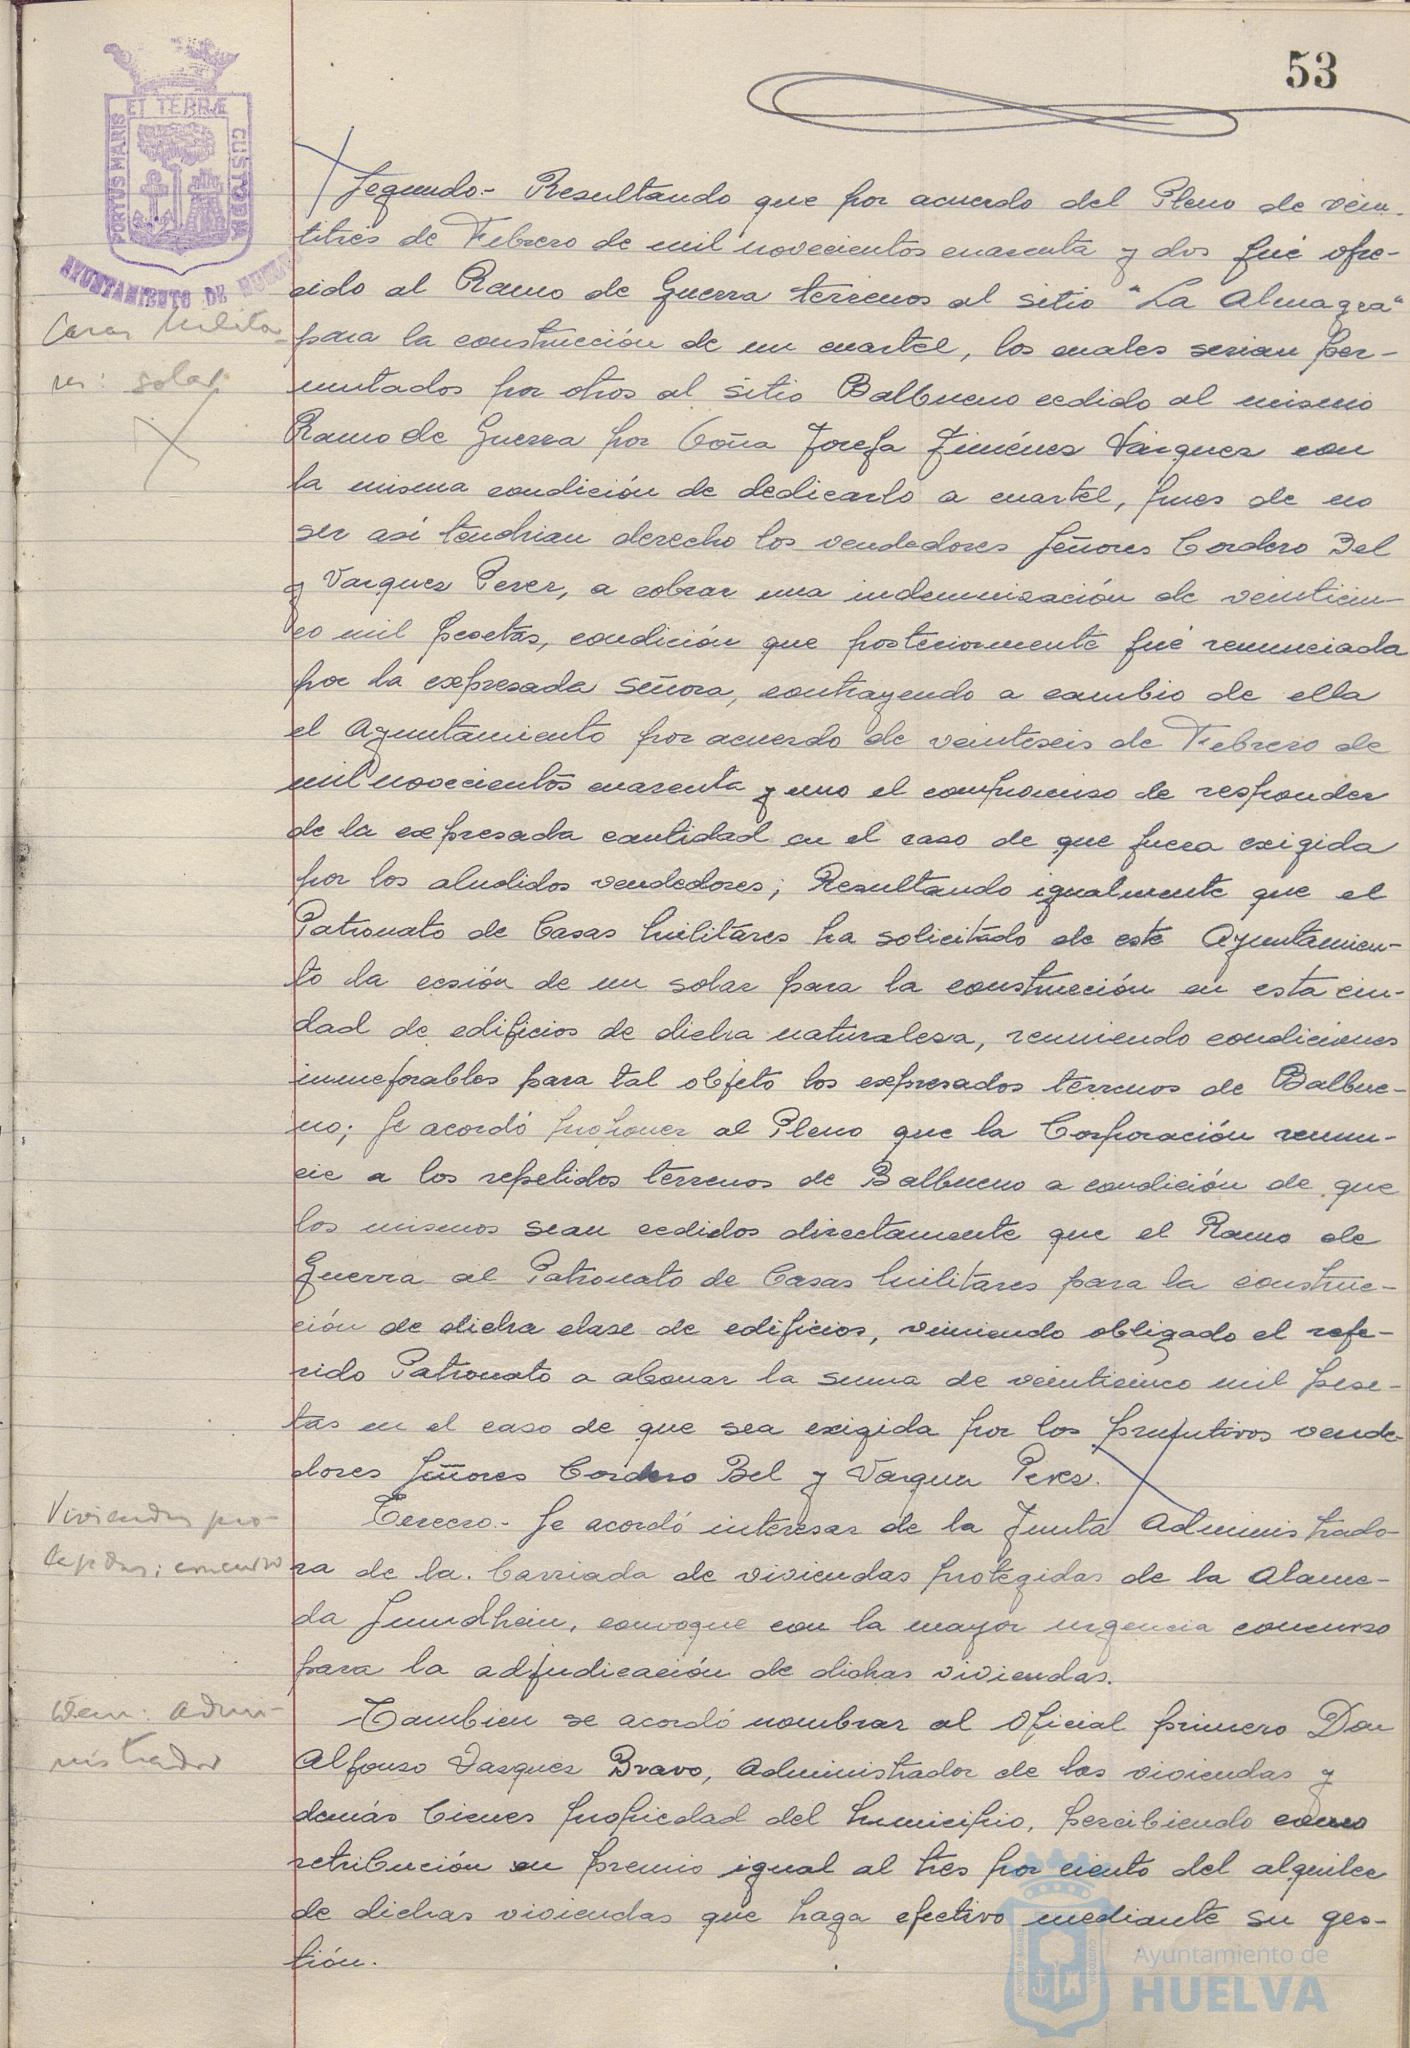 53
ET TERRÆ
PORTUS MARIS
CUSTODIA
AYUNTAMIENTO DE HUELVA
Casas Milita-
res: solar
Segundo.- Resultando que por acuerdo del Pleno de vein-
titres de Febrero de mil novecientos cuarenta y dos fué ofre-
cido al Ramo de Guerra terrenos al sitio "La Almagra"
para la construcción de un cuartel, los cuales serian per-
mutados por otros al sitio Balbueno cedido al mismo
Ramo de Guerra por Doña Josefa Jiménez Vázquez con
la misma condición de dedicarlo a cuartel, pues de no
ser asi tendrian derecho los vendedores Señores Cordero Bel
y Vazquez Perez, a cobrar una indemnización de veinticin-
co mil pesetas, condición que posteriormente fué renunciada
por la expresada señora, contrayendo a cambio de ella
el Ayuntamiento por acuerdo de veinteseis de Febrero de
mil novecientos cuarenta y uno el compromiso de responder
de la expresada cantidad en el caso de que fuera exigida
por los aludidos vendedores; Resultando igualmente que el
Patronato de Casas Militares ha solicitado de este Ayuntamien-
to la cesión de un solar para la construcción en esta ciu-
dad de edificios de dicha naturaleza, reuniendo condiciones
inmejorables para tal objeto los expresados terrenos de Balbue-
no; Se acordó proponer al Pleno que la Corporación renun-
cie a los repetidos terrenos de Balbueno a condición de que
los mismos sean cedidos directamente que el Ramo de
Guerra al Patronato de Casas Militares para la construc-
ción de dicha clase de edificios, viniendo obligado el refe-
rido Patronato a abonar la suma de veinticinco mil pese-
tas en el caso de que sea exigida por los primitivos vende-
dores Señores Cordero Bel y Vazquez Perez.
Viviendas pro-
tegidas: concurso
Tercero.- Se acordó interesar de la Junta Administrado-
ra de la barriada de viviendas protegidas de la Alame-
da Sundhein, convoque con la mayor urgencia concurso
para la adjudicación de dichas viviendas.
Idem: admi-
nistrador
Tambien se acordó nombrar al Oficial primero Don
Alfonso Vazquez Bravo, Administrador de las viviendas y
demás bienes propiedad del Municipio, percibiendo como
retribución un premio igual al tres por ciento del alquiler
de dichas viviendas que haga efectivo mediante su ges-
tión.
Ayuntamiento de
HUELVA